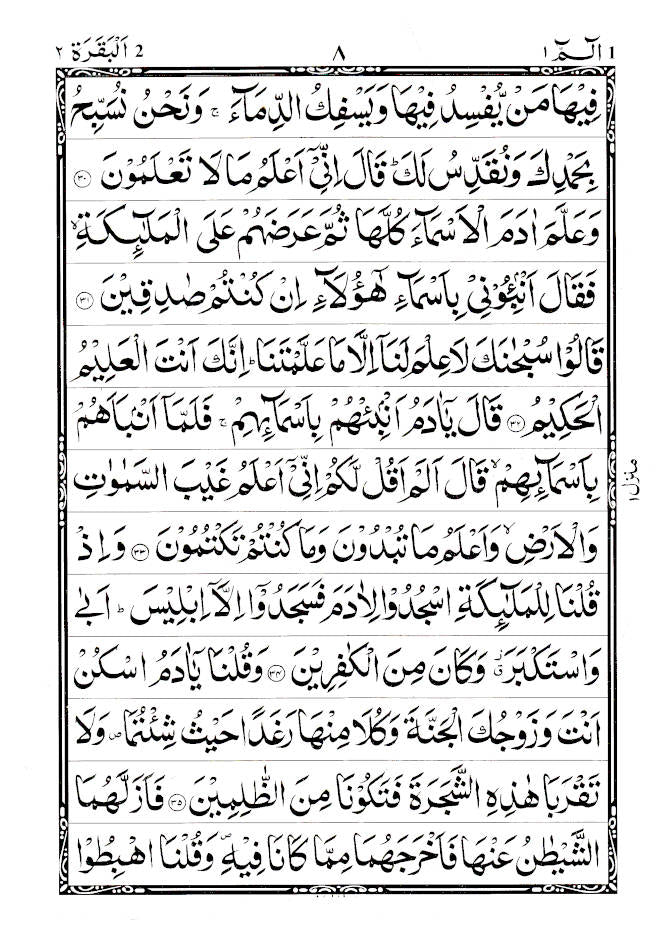 1 الٓـمّٓ ١ ٨ 2 اَلْبَقَرَة ٢
فِيْهَا مَنْ يُّفْسِدُ فِيْهَا وَيَسْفِكُ الدِّمَآءَ ۚ وَنَحْنُ نُسَبِّحُ
بِحَمْدِكَ وَنُقَدِّسُ لَكَ ؕ قَالَ اِنِّىْٓ اَعْلَمُ مَا لَا تَعْلَمُوْنَ ﴿۳۰﴾
وَعَلَّمَ اٰدَمَ الْاَسْمَآءَ كُلَّهَا ثُمَّ عَرَضَهُمْ عَلَى الْمَلٰٓئِكَةِ ۙ
فَقَالَ اَنْۢبِـُٔوْنِىْ بِاَسْمَآءِ هٰٓؤُلَآءِ اِنْ كُنْتُمْ صٰدِقِيْنَ ﴿۳۱﴾
قَالُوْا سُبْحٰنَكَ لَا عِلْمَ لَنَآ اِلَّا مَا عَلَّمْتَنَا ؕ اِنَّكَ اَنْتَ الْعَلِيْمُ
الْحَكِيْمُ ﴿۳۲﴾ قَالَ يٰٓاٰدَمُ اَنْۢبِئْهُمْ بِاَسْمَآئِهِمْ ۚ فَلَمَّآ اَنْۢبَاَهُمْ
بِاَسْمَآئِهِمْ ۙ قَالَ اَلَمْ اَقُلْ لَّكُمْ اِنِّىْٓ اَعْلَمُ غَيْبَ السَّمٰوٰتِ
وَالْاَرْضِ ۙ وَاَعْلَمُ مَا تُبْدُوْنَ وَمَا كُنْتُمْ تَكْتُمُوْنَ ﴿۳۳﴾ وَاِذْ
قُلْنَا لِلْمَلٰٓئِكَةِ اسْجُدُوْا لِاٰدَمَ فَسَجَدُوْٓا اِلَّآ اِبْلِيْسَ ؕ اَبٰى
وَاسْتَكْبَرَ ۗ وَكَانَ مِنَ الْكٰفِرِيْنَ ﴿۳۴﴾ وَقُلْنَا يٰٓاٰدَمُ اسْكُنْ
اَنْتَ وَزَوْجُكَ الْجَنَّةَ وَكُلَا مِنْهَا رَغَدًا حَيْثُ شِئْتُمَا ۪ وَلَا
تَقْرَبَا هٰذِهِ الشَّجَرَةَ فَتَكُوْنَا مِنَ الظّٰلِمِيْنَ ﴿۳۵﴾ فَاَزَلَّهُمَا
الشَّيْطٰنُ عَنْهَا فَاَخْرَجَهُمَا مِمَّا كَانَا فِيْهِ ۪ وَقُلْنَا اهْبِطُوْا
منزل ١